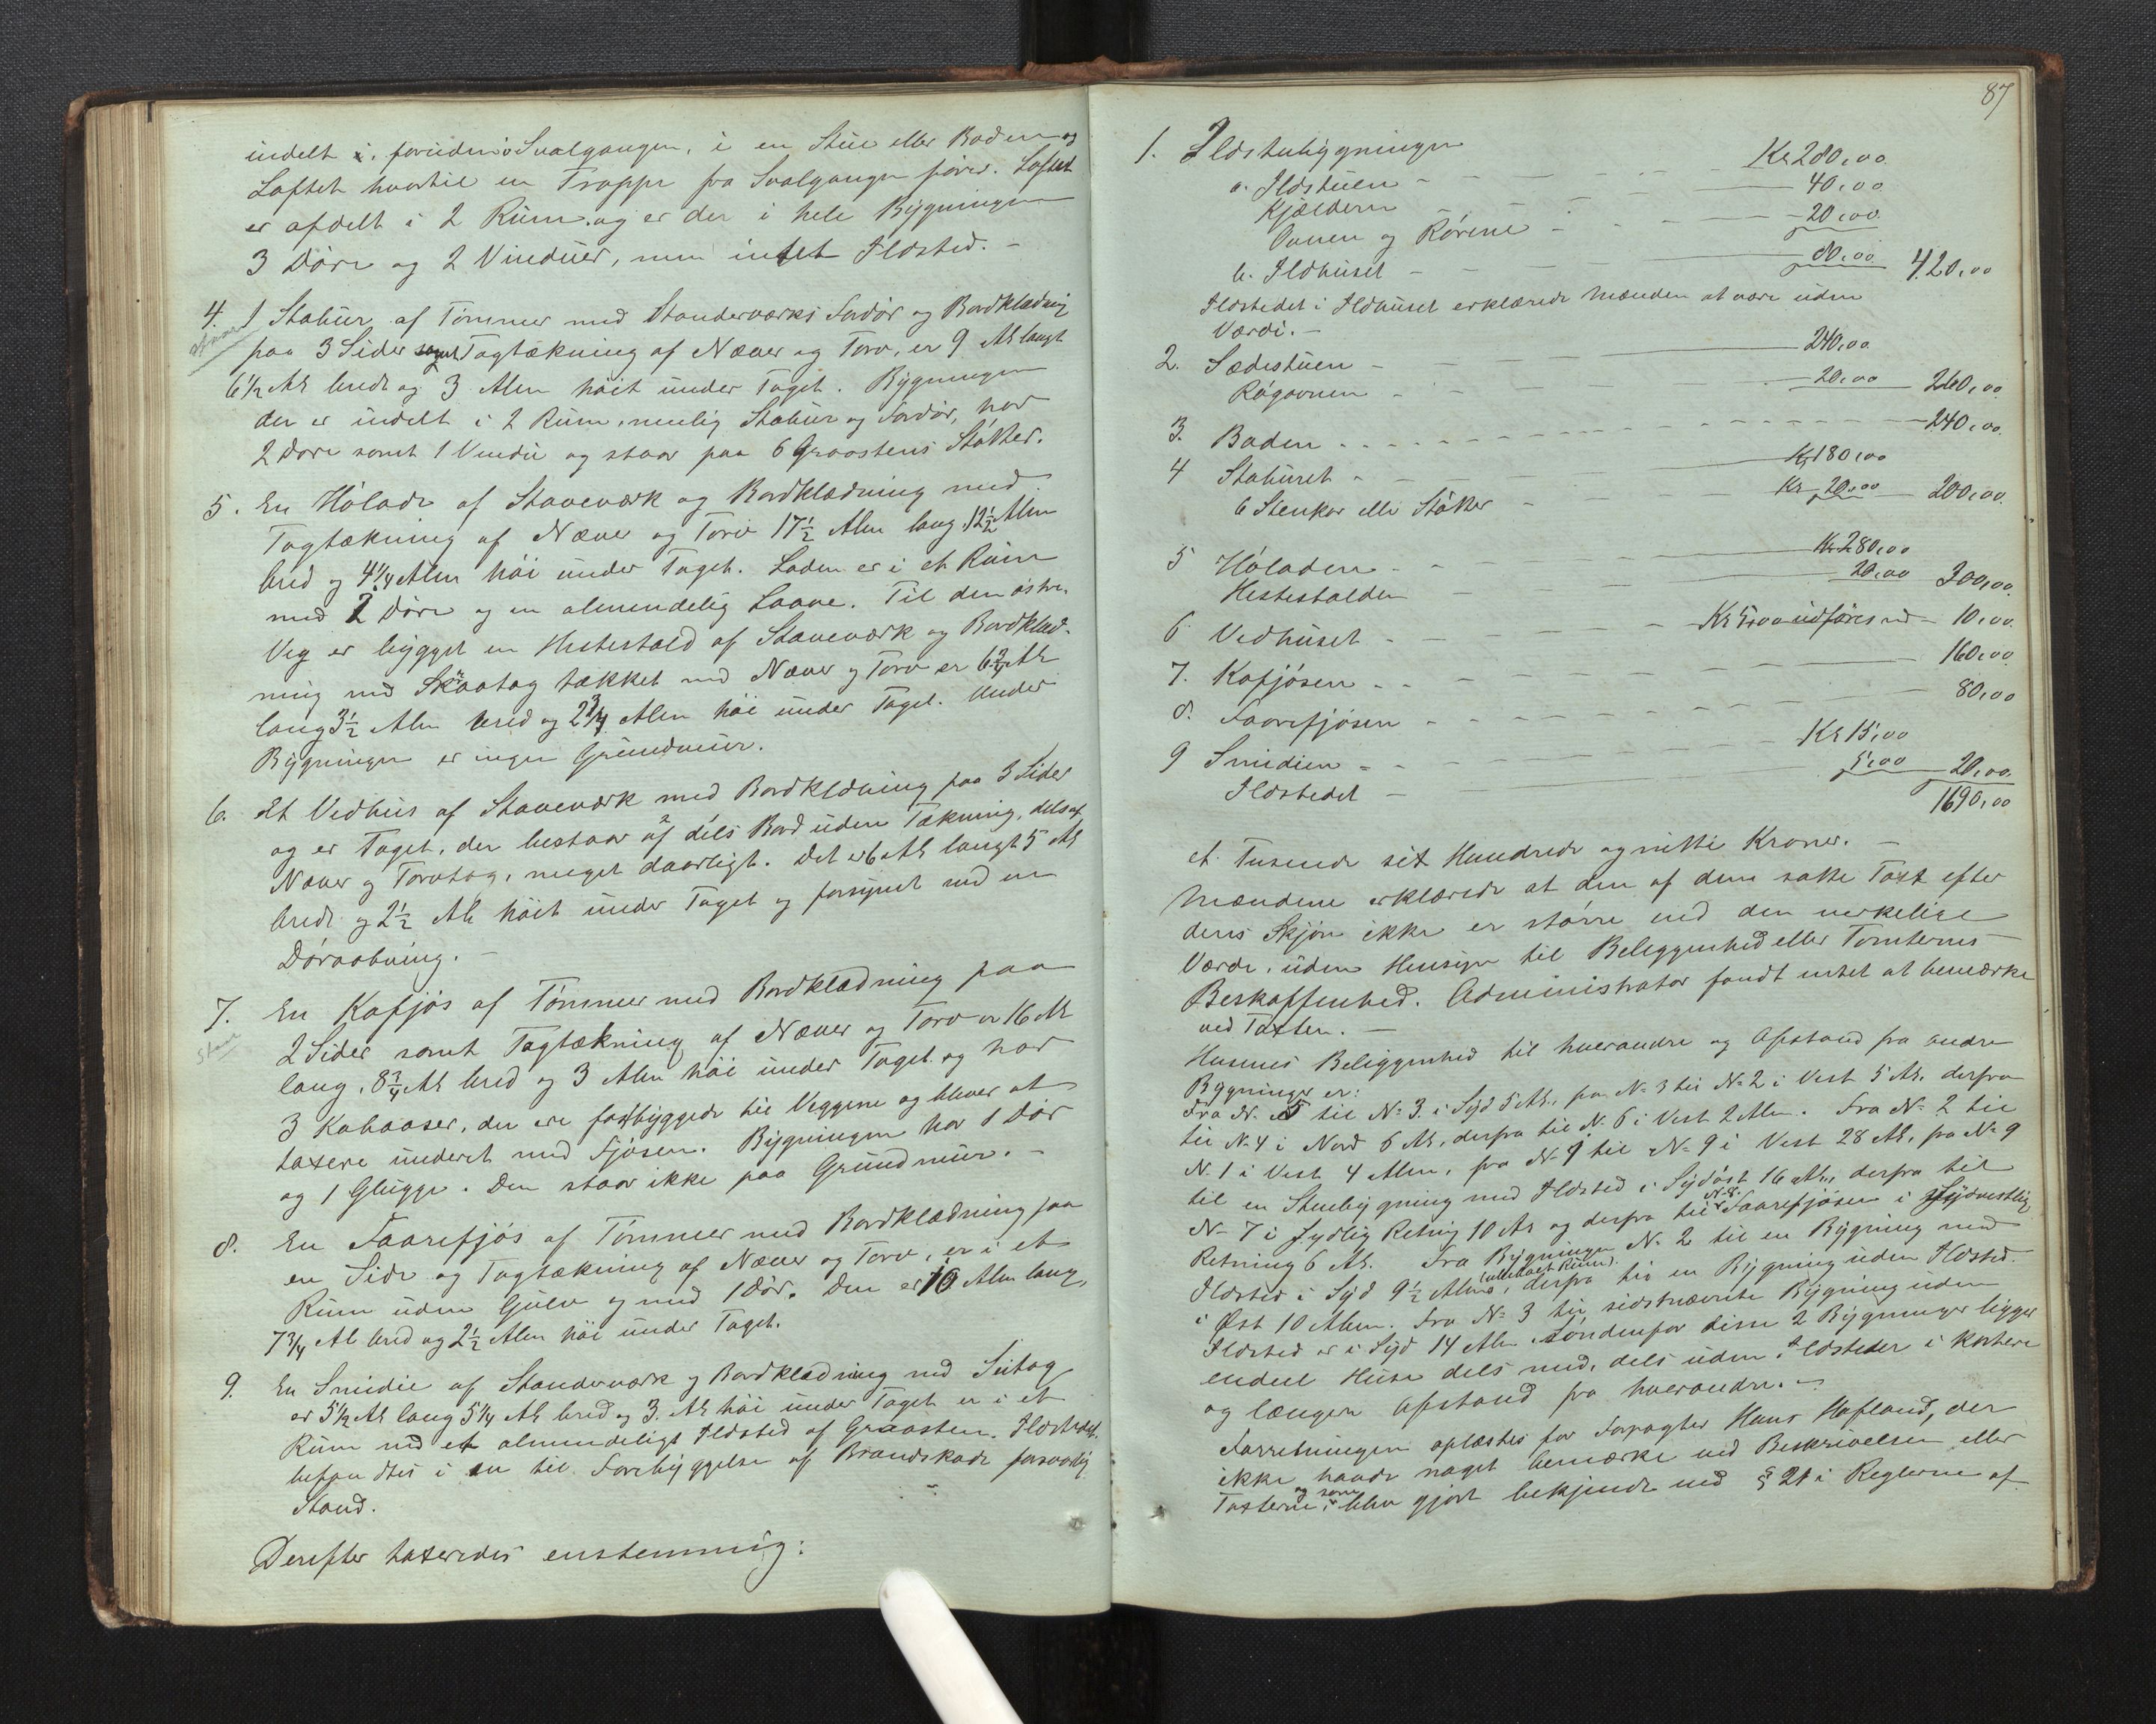 indelt i, foruden Svalgangen, i en Stue eller Boden og
Loftet hvortil en Trappe fra Svalgangen fører. Loftet
er afdelt i 2 Rum og er der i hele Bygningen
3 Døre og 2 Vinduer, men intet Ildsted. -
4. 1 Stabur af Tømmer med Standerværks Fordør og Bordklædning
paa 3 Sider samt Tagtækning af Næver og Torv, er 9 Al. langt
6 1/2 Al. bredt og 3 Alen høit under Taget. Bygningen
der er indelt i 2 Rum, nemlig Stabur og Fordør, har
2 Døre samt 1 Vindu og staar paa 6 Graastens Støtter.
5. En Hølade af Staveværk og Bordklædning med
Tagtækning af Næver og Torv 17 1/2 Alen lang, 12 1/2 Alen
bred og 4 1/4 Alen høi under Taget. Laden er i et Rum
med 2 Døre og en almindelig Laave. Til den østre
Veg er bygget en Hestestald af Staveværk og Bordklæd-
ning med Skraatag tækket med Næver og Torv er 6 3/4 Al.
lang 3 1/2 Alen bred og 2 3/4 Alen høi under Taget. Under
Bygningen er ingen Grundmur.
6. Et Vedhus af Staveværk med Bordklædning paa 3 Sider
og er Taget, der bestaar af dels Bord uden Tækning, dels af
Næver og Torvtag, meget daarligt. Det er 6 Al. langt 5 Al.
bredt og 2 1/2 Al. høit under Taget og forsynet med en
Døraabning. -
7. En Kafjøs af Tømmer med Bordklædning paa
2 Sider samt Tagtækning af Næver og Torv er 16 Al.
lang, 8 3/4 Al. bred og 3 Alen høi under Taget og har
3 Kobaaser, der ere fastbyggede til Veggene og bliver at
taxere underet med Fjøsen. Bygningen har 1 Dør
og 1 Glugge. Den staar ikke paa Grundmur. -
8. En Faarefjøs af Tømmer med Bordklædning paa
en Side og Tagtækning af Næver og Torv, er i et
Rum uden Gulv og med 1 Dør. Den er 10 Alen lang,
7 3/4 Al. bred og 2 1/2 Alen høi under Taget.
9. En Smidie af Standerværk og Bordklædning med Sutag
er 5 1/2 Al. lang 5 1/4 Al. bred og 3 Al. høi under Taget er i et
Rum med et almindeligt Ildsted af Graasten. Ildstedet
befandtes i en til Forebyggelse af Brandskade forsvarlig
Stand.
Derefter taxeredes enstemmig:
87
1. Ildstubygningen
a. Ildstuen - - - Kr 280,00
Kjælderen - - - 40,00
Ovnen og Rørene - - - 20,00
b. Ildhuset - - - 80,00 420,00
Ildstedet i Ildhuset erklærede Mænden at være uden
Værdi. -
2. Sædestuen - - - 240,00
Røgovnen - - - 20,00 260,00
3. Boden - - - 240,00
4 Staburet - - - Kr 180,00
6 Stenkar eller Støtter - - - Kr 20,00 200,00
5 Høladen - - - Kr 280,00
Hestestalden - - - 20,00 300,00
6 Vedhuset - - - Kr 5,00 udføres med - 10,00
7. Kafjøsen - - - 160,00
8. Faarefjøsen - - - 80,00
9 Smidien - - - Kr 15,00
Ildstedet - - - 5,00 20,00
1690,00
et Tusende sex Hundrede og nitti Kroner. -
Mændene erklærede at den af dem satte Taxt efter
deres Skjøn ikke er større end den verkelige
Værdi, uden Hensyn til Beleggenhed eller Tomternes
Beskaffenhed. Administrator fandt intet at bemærke
ved Taxten. -
Husenes Beliggenhed til hverandre og Afstand fra andre
Bygninger er:
Fra N. 5 til N. 3 i Syd 5 Al., fra N. 3 til N. 2 i Vest 5 Al. derfra
til N. 4 i Nord 6 Al., derfra til N. 6 i Vest 2 Alen. Fra N. 2 til
N. 1 i Vest 4 Alen, fra N. 1 til N. 9 i Vest 28 Al., fra N. 9
til en Stenbygning med Ildsted i Sydøst 16 Al., derfra til
N. 7 i sydlig Retning 10 Al. og derfra til N. 8. Faarefjøsen i sydvestlig
Retning 6 Al. Fra Bygningen N. 2 til en Bygning med
Ildsted i Syd 9 1/2 Alen (ubeboet Rum), derfra til en Bygning uden Ildsted
i Øst 10 Alen. Fra N. 3 til sidstnævnte Bygning uden
Ildsted er i Syd 14 Alen. Søndenfor disse 2 Bygninger ligger
endeel Huse dels med, dels uden Ildsteder i kortere
og længere Afstand fra hverandre. -
Forretningen oplæstes for Forpagter Hans Hafland, der
ikke havde noget bemærke ved Beskrivelsen eller
Taxterne og som blev gjort bekjendt med § 21 i Reglerne af